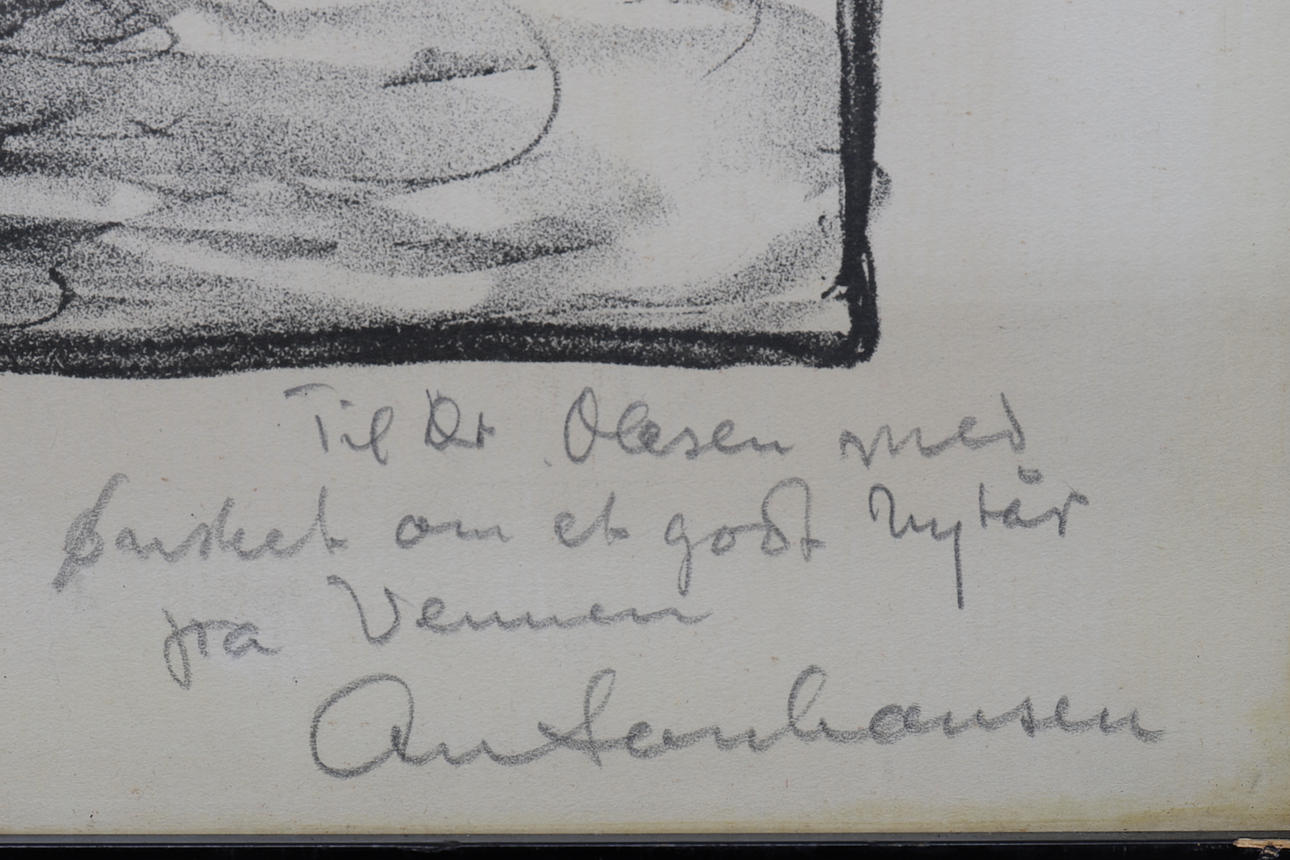 Til Dr. Olesen med
ønsket om et godt Nytår
fra Vennen
Antonhansen